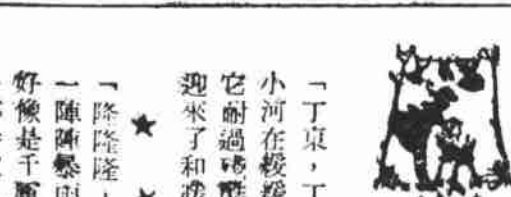 「丁東，丁
小河在緩緩
它耐過
迎來了和
★
「隆隆隆，
一陣陣暴雨
好像是千